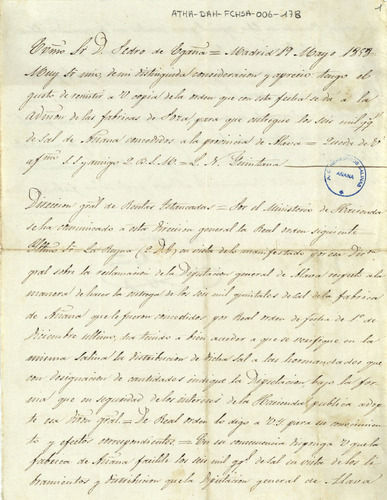 ATHA-DAH-FCHSA-006-178
1
Exmo Sr D. Pedro de Egaña = Madrid 19 Mayo 1853
Muy Sr mio, de mi distinguida consideracion y aprecio: tengo el
gusto de remitir a V copia de la orden que con esta fecha se da a la
admon de las fabricas de Poza para que entregue los seis mil qq.s
de sal de Añana concedidos a la provincia de Alava = Quedo de V
af.mo S. S. y amigo Q. B. S. M. = J. N. Quintana
AÑANA
Direccion gral de Rentas Estancadas = Por el Ministerio de Hacienda
se ha comunicado a esta Direccion general la Real orden siguiente
Illmo Sr. La Reyna (Q. D. G) en vista de lo manifestado por esa Direc.n
gral sobre la reclamacion de la Diputacion general de Alava respecto a la
manera de hacer la entrega de los seis mil quintales de sal de la fabrica
de Añana que le fueron concedidos por Real orden de fecha de 1º de
Diciembre ultimo, ha tenido a bien acceder a que se verifique en la
misma Salina la distribucion de dicha sal a las hermandades que
con designacion de cantidades indique la Diputacion, bajo la for
ma que en seguridad de los intereses de la Hacienda publica adop
te esa Direc.n gral. = De Real orden lo digo a V. I para su conocimien
to y efectos correspondientes = En su consecuencia disponga V que la
fabrica de Añana facilite los seis mil qq.s de sal en vista de los li
bramientos y distribucion que la Diputacion general de Alava